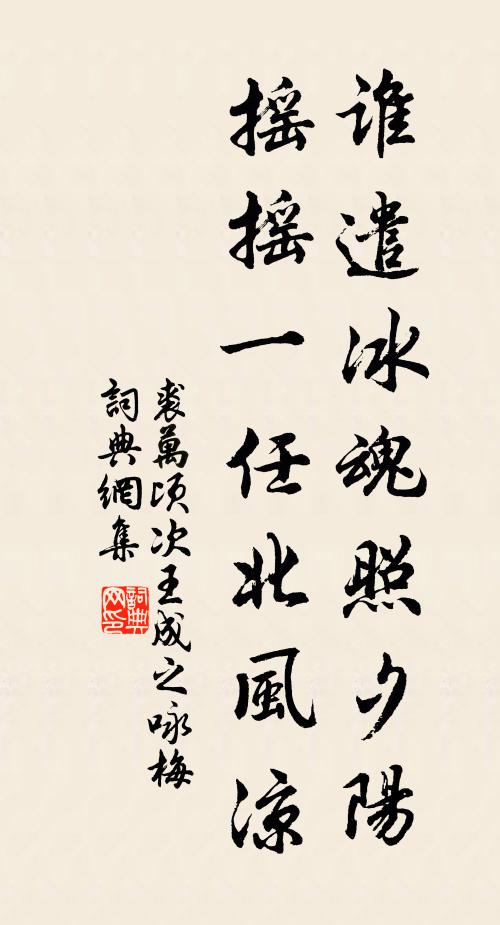 谁遣冰魂照夕陽
摇摇一任北風凉
裘萬頃次王成之咏梅
詞典網集
詞典网印